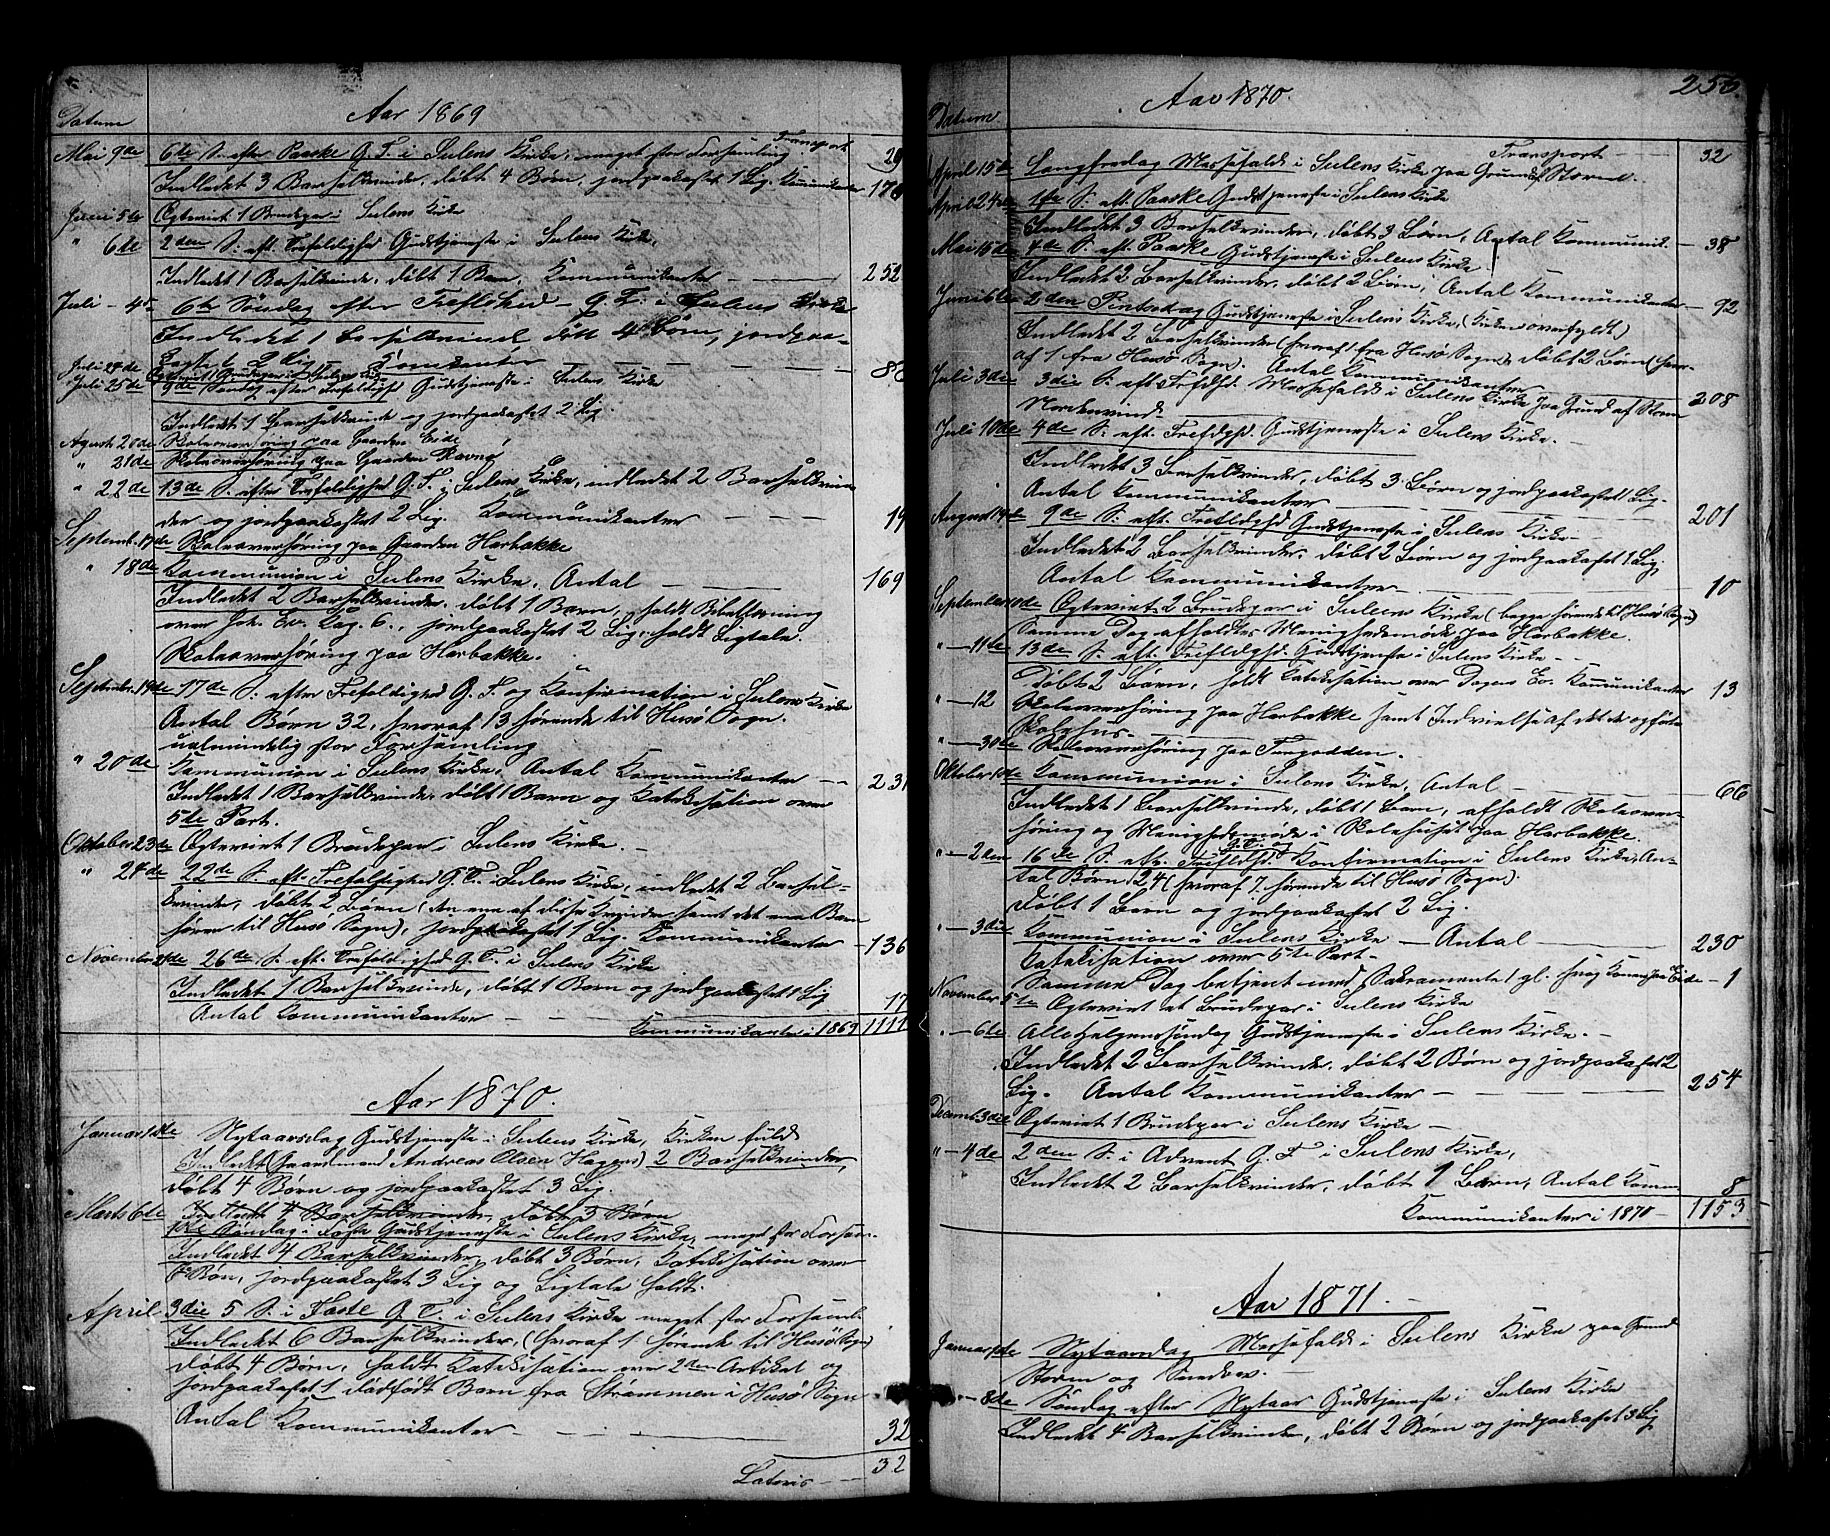 Datum Aar 1869
Transport
Mai 9de 6te S. efter Paaske G.T. i Sulens Kirke, meget stor Forsamling 29
Indledet 3 Barselkvinder, døbt 4 Børn, jordpaakastet 1 Lig. Kommunikanter
Juni 5te Ægteviet 1 Brudepar i Sulens Kirke
" 6te 2den S. eft. Trefoldighed Gudstjeneste i Sulens Kirke,
Indledet 1 Barselkvinde, døbt 1 Barn, Kommunikanter — 252
Juli - 4de 6te Søndag efter G.T. i Sulens Kirke
Indledet 1 Barselkvinde døbt 4 Børn, jordpaa-
kastet Lig —
Juli 24de Ægteviet 1 Brudepar i Sulens Kirke
Juli 25de 9de Søndag efter Trefoldighed Gudstjeneste i Sulens Kirke
Indledet 1 Barselkvinde og jordpaakastet 2 Lig.
August 20de Skoleoverhøring paa Gaarden Eide
" 21de Skoleoverhøring paa Gaarden Ravnø
" 22de 13de S. efter Trefoldighed G.T. i Sulens Kirke, indledet 2 Barselkvin
der og jordpaakastet 2 Lig. Kommunikanter — 19
Septemb. 17de Skoleoverhøring paa Gaarden Harbakke
" 18de Kommunion i Sulens Kirke, Antal — 169
Indledet 2 Barselkvinder, døbt 1 Barn, holdt Bibellæsning
over Joh. Ev. Cap. 6., jordpaakastet 2 Lig, holdt Ligtale.
Skoleoverhøring paa Harbakke.
September 19de 17de S. efter Trefoldighed G.T. og Konfirmation i Sulens Kirke
Antal Børn 32, hvoraf 13 hørende til Husø Sogn.
ualmindelig stor Forsamling
" 20de Kommunion i Sulens Kirke, Antal Kommunikanter — 231
Indledet 1 Barselkvinde, døbt 1 Barn og Katekisation over
5te Part.
Oktober 23de Ægteviet 1 Brudepar i Sulens Kirke. —
" 24de 22de S. eft. Trefoldighed G.T. i Sulens Kirke, indledet 2 Barsel-
kvinder, døbt 2 Børn (den ene af disse Kvinder samt det ene Barn
hører til Husø Sogn), jordpaakastet 1 Lig. Kommunikanter — 136
November 21de 26de S. eft. Trefoldighed G.T. i Sulens Kirke
Indledet 1 Barselkvinde, døbt 1 Barn og jordpaakastet 1 Lig
Antal Kommunikanter — 17
Kommunikanter i 1869 1111
Aar 1870.
Januar 1ste Nytaarsdag Gudstjeneste i Sulens Kirke, Kirken fuld
Indledet (Gaardmand Andreas Olsen Hagens) 2 Barselkvinder,
døbt 4 Børn og jordpaakastet 3 Lig.
Marts 6te Indledet 4 Barselkvinder, døbt 3 Børn
1ste Søndag i Faste Gudstjeneste i Sulens Kirke, meget stor Forsam-
Indledet 4 Barselkvinder, døbt 3 Børn, Katekisation over
Bøn, jordpaakastet 3 Lig og Ligtale holdt.
April 3die 5 S. i Faste G.T. i Sulens Kirke meget stor Forsaml.
Indledet 6 Barselkvinder, (hvoraf 1 hørende til Husø Sogn)
døbt 4 Børn, holdt Katekisation over 2den Artikel og
jordpaakastet 1 dødfødt Barn fra Strømmen i Husø Sogn
Antal Kommunikanter — 32
Lateris — 32
256.
Datum. Aar 1870.
Transport — 32
April 15de Langfredag Messefald i Sulens Kirke paa Grund af Storm.
April 24de 1ste S. eft. Paaske Gudstjeneste i Sulens Kirke
Indledet 3 Barselkvinder, døbt 3 Børn, Antal Kommunik. — 38
Mai 15de 4de S. eft. Paaske Gudstjeneste i Sulens Kirke.
Indledet 2 Barselkvinder, døbt 2 Børn, Antal Kommunikanter — 92
Juni 6te 2den Pintsedag Gudstjeneste i Sulens Kirke, (Kirken overfyldt)
Indledet 2 Barselkvinder (hvoraf 1 fra Husø Sogn), døbt 2 Børn (hvor-
af 1 fra Husø Sogn). Antal Kommunikanter — 208
Juli 3die 3die S. eft. Trefdhd. Messefald i Sulens Kirke paa Grund af Storm
Nordenvind —
Juli 10de 4de S. eft. Trefdghd. Gudstjeneste i Sulens Kirke. —
Indledet 3 Barselkvinder, døbt 3 Børn og jordpaakastet 1 Lig.
Antal Kommunikanter — 201
August 14de 9de S. eft. Trefldghd Gudstjeneste i Sulens Kirke —
Indledet 2 Barselkvinder, døbt 2 Børn og jordpaakastet 1 Lig.
Antal Kommunikanter — 10
September 10de Ægteviet 2 Brudepar i Sulens Kirke (begge hørende til Husø Sogn)
Samme Dag afholdtes Menighedsmøde paa Harbakke.
" — 11te 13de S. eft. Trefldghd. Gudstjeneste i Sulens Kirke — —
Døbt 2 Børn, holdt Katekisation over Dagens Ev. Kommunikanter 13
" — 12 Skoleoverhøring paa Harbakke samt Indvielse af det der opførte
Skolehus —
" — 30de Skoleoverhøring paa Tungodden.
Oktober 1ste Kommunion i Sulens Kirke, Antal — 66
Indledet 1 Barselkvinde, døbt 1 Barn, afholdt Skoleover-
høring og Menighedsmøde i Skolehuset paa Harbakke.
" — 2den 16de S. eft. Trefldhd. G.T. og Konfirmation i Sulens Kirke, An-
tal Børn 24 (hvoraf 7 hørende til Husø Sogn).
Døbt 1 Barn og jordpaakastet 2 Lig.
" — 3die Kommunion i Sulens Kirke — Antal — 230
Katekisation over 5te Part.
Samme Dag betjent med Sakramente 1 gl. svag Kone paa Eide — 1
November 5te Ægteviet et Brudepar i Sulens Kirke
" — 6te Allehelgenssøndag Gudstjeneste i Sulens Kirke. —
Indledet 2 Barselkvinder, døbt 2 Børn og jordpaakastet 2
Lig. Antal Kommunikanter — 254
Decemb. 3die Ægteviet 1 Brudepar i Sulens Kirke —
" — 4de 2den S. i Advent G.T. i Sulens Kirke,
Indledet 2 Barselkvinder, døbt 1 Barn, Antal Komm. 8
Kommunikanter i 1870 — 1153
Aar 1871. —
Januar 1ste Nytaarsdag Messefald i Sulens Kirke paa Grund
Storm og Snedrev.
" — 8de Søndag efter Nytaar Gudstjeneste i Sulens Kirke
Indledet 4 Barselkvinder, døbt 2 Børn og jordpaakastet 3 Lig